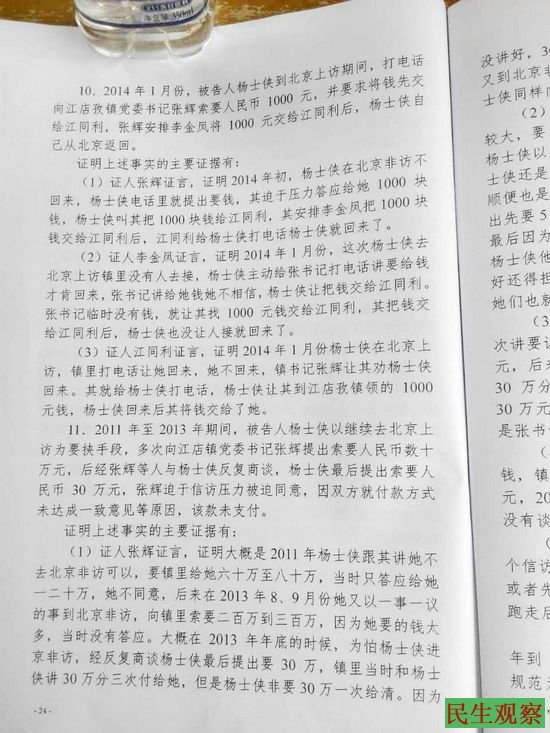 350ml
10. 2014 年 1 月份，被告人杨士侠到北京上访期间，打电话
向江店孜镇党委书记张辉索要人民币 1000 元，并要求将钱先交
给江同利，张辉安排李金凤将 1000 元交给江同利后，杨士侠自
己从北京返回。
证明上述事实的主要证据有：
（1）证人张辉证言，证明 2014 年初，杨士侠在北京非访不
回来，杨士侠电话里就提出要钱，其迫于压力答应给她 1000 块
钱，杨士侠叫其把 1000 块钱给江同利，其安排李金凤把 1000 块
钱交给江同利后，江同利给杨士侠打电话杨士侠就回来了。
（2）证人李金凤证言，证明 2014 年 1 月份，这次杨士侠去
北京上访镇里没有人去接，杨士侠主动给张书记打电话讲要给钱
才肯回来，张书记讲给她钱她不相信，杨士侠让把钱交给江同利。
张书记临时没有钱，就让其找 1000 元钱交给江同利，其把钱交
给江同利后，杨士侠也没让人接就回来了。
（3）证人江同利证言，证明 2014 年 1 月份杨士侠在北京上
访，镇里打电话让她回来，她不回来，镇书记让其劝杨士侠
回来。其就给杨士侠打电话，杨士侠让其到江店孜镇领的 1000
元钱，杨士侠回来后其将钱交给了她。
11. 2011 年至 2013 年期间，被告人杨士侠以继续去北京上
访为要挟手段，多次向江店镇党委书记张辉提出索要人民币数十
万元，后经张辉等人与杨士侠反复商谈，杨士侠最后提出索要人
民币 30 万元，张辉迫于信访压力被迫同意，因双方就付款方式
未达成一致意见等原因，该款未支付。
证明上述事实的主要证据有：
（1）证人张辉证言，证明大概是 2011 年杨士侠跟其讲她不
去北京非访可以，要镇里给她六十万至八十万，当时只答应给她
一二十万，她不同意，后来在 2013 年 8、9 月份她又以一事一议
的事到北京非访，向镇里索要二百万到三百万，因为她要的钱太
多，当时没有答应。大概在 2013 年年底的时候，为怕杨士侠进
京非访，经反复商谈杨士侠最后提出要 30 万，镇里当时和杨士
侠讲 30 万分三次付给她，但是杨士侠非要 30 万一次给清。因为
- 24 -
没讲好，30
又到北京非
士侠同样
（2）
较大，要
杨士侠以
士侠还是
顺便也是
出先要 5
最后因为
杨士侠他
好还得担
她们也就
（3
次讲要让
元，后来
30 万分
30 万元
是张书
钱，镇
元，20
没有谈
个信访
或者先
跑走后
年到
规范
民生观察